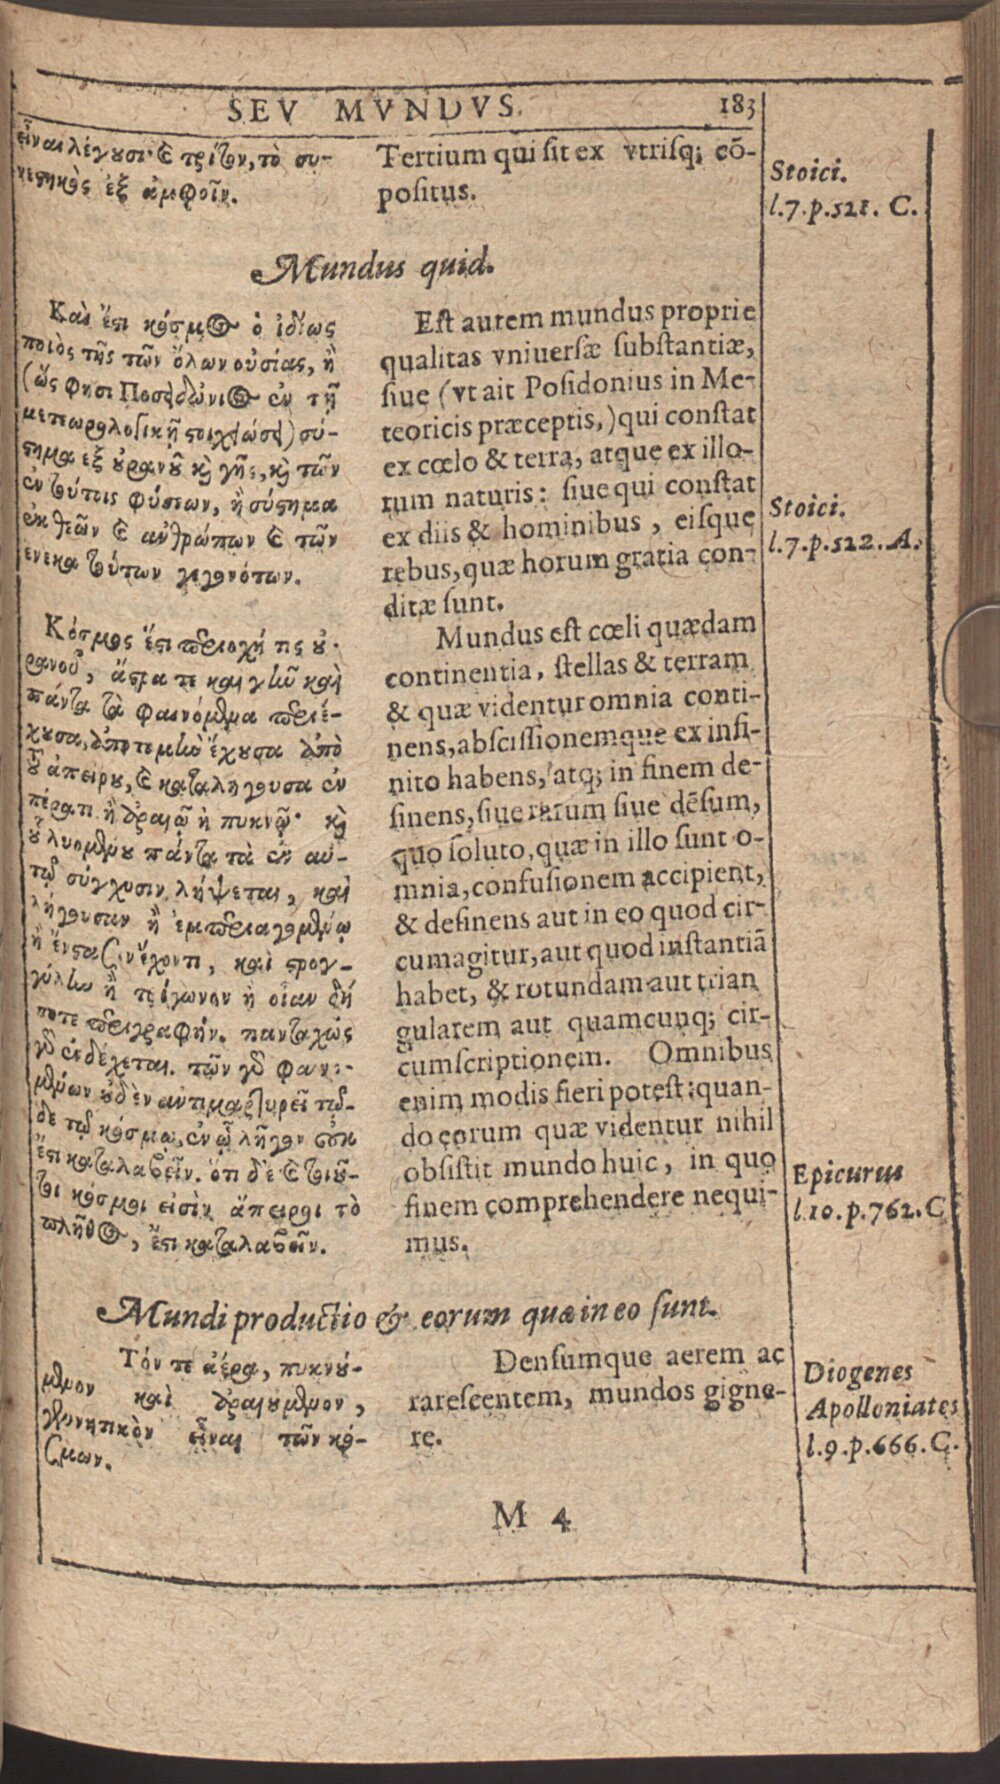 SEV MVNDVS. 183
εἶναι λέγουσι· καὶ τρίτον, τὸ συ-
νεστηκὸς ἐξ ἀμφοῖν.
Tertium qui sit ex vtrisq; cō-
positus.
Stoici.
l.7.p.521. C.
Mundus quid.
Καὶ ἔστι κόσμος ὁ ἰδίως
ποιὸς τῆς τῶν ὅλων οὐσίας, ἢ
(ὥς φησι Ποσειδώνιος ἐν τῇ
μετεωρολογικῇ στοιχειώσει) σύ-
στημα ἐξ οὐρανοῦ καὶ γῆς, καὶ τῶν
ἐν τούτοις φύσεων, ἢ σύστημα
ἐκ θεῶν καὶ ἀνθρώπων καὶ τῶν
ἕνεκα τούτων γεγονότων.
Est autem mundus proprie
qualitas vniuersæ substantiæ,
siue (vt ait Posidonius in Me-
teoricis præceptis,) qui constat
ex cœlo & terra, atque ex illo-
rum naturis: siue qui constat
ex diis & hominibus, eisque
rebus, quæ horum gratia con-
ditæ sunt.
Stoici.
l.7.p.522. A.
Κόσμος ἔστι περιοχή τις οὐ-
ρανοῦ, ἄστρα τε καὶ γῆν καὶ
πάντα τὰ φαινόμενα περιέ-
χουσα, ἀποτομὴν ἔχουσα ἀπὸ
τοῦ ἀπείρου, καὶ καταλήγουσα ἐν
πέρατι ἢ ἀραιῷ ἢ πυκνῷ· καὶ
οὗ λυομένου πάντα τὰ ἐν αὐ-
τῷ σύγχυσιν λήψεται, καὶ
λήγουσαν ἢ ἐν περιαγομένῳ
ἢ ἔνστασιν ἔχοντι, καὶ στρογ-
γύλην ἢ τρίγωνον ἢ οἵαν δή
ποτε περιγραφήν. πανταχῶς
γὰρ ἐνδέχεται. τῶν γὰρ φαινο-
μένων οὐδὲν ἀντιμαρτυρεῖ τῷ-
δε τῷ κόσμῳ, ἐν ᾧ λῆγον οὐκ
ἔστι καταλαβεῖν. ὅτι δὲ καὶ τοιοῦ-
τοι κόσμοι εἰσὶν ἄπειροι τὸ
πλῆθος, ἔστι καταλαβεῖν.
Mundus est cœli quædam
continentia, stellas & terram
& quæ videntur omnia conti-
nens, abscissionemque ex infi-
nito habens, atq; in finem de-
sinens, siue rarum siue dēsum,
quo soluto, quæ in illo sunt o-
mnia, confusionem accipient,
& desinens aut in eo quod cir-
cumagitur, aut quod instantiā
habet, & rotundam aut trian
gularem aut quamcunq; cir-
cumscriptionem. Omnibus
enim modis fieri potest: quan-
do eorum quæ videntur nihil
obsistit mundo huic, in quo
finem comprehendere nequi-
mus.
Epicurus
l.10.p.762.C
Mundi productio & eorum quæ in eo sunt.
Τόν τε ἀέρα, πυκνού-
μενον καὶ ἀραιούμενον,
γεννητικὸν εἶναι τῶν κό-
σμων.
Densumque aerem ac
rarescentem, mundos gigne-
re.
Diogenes
Apolloniates
l.9.p.666.C.
M 4